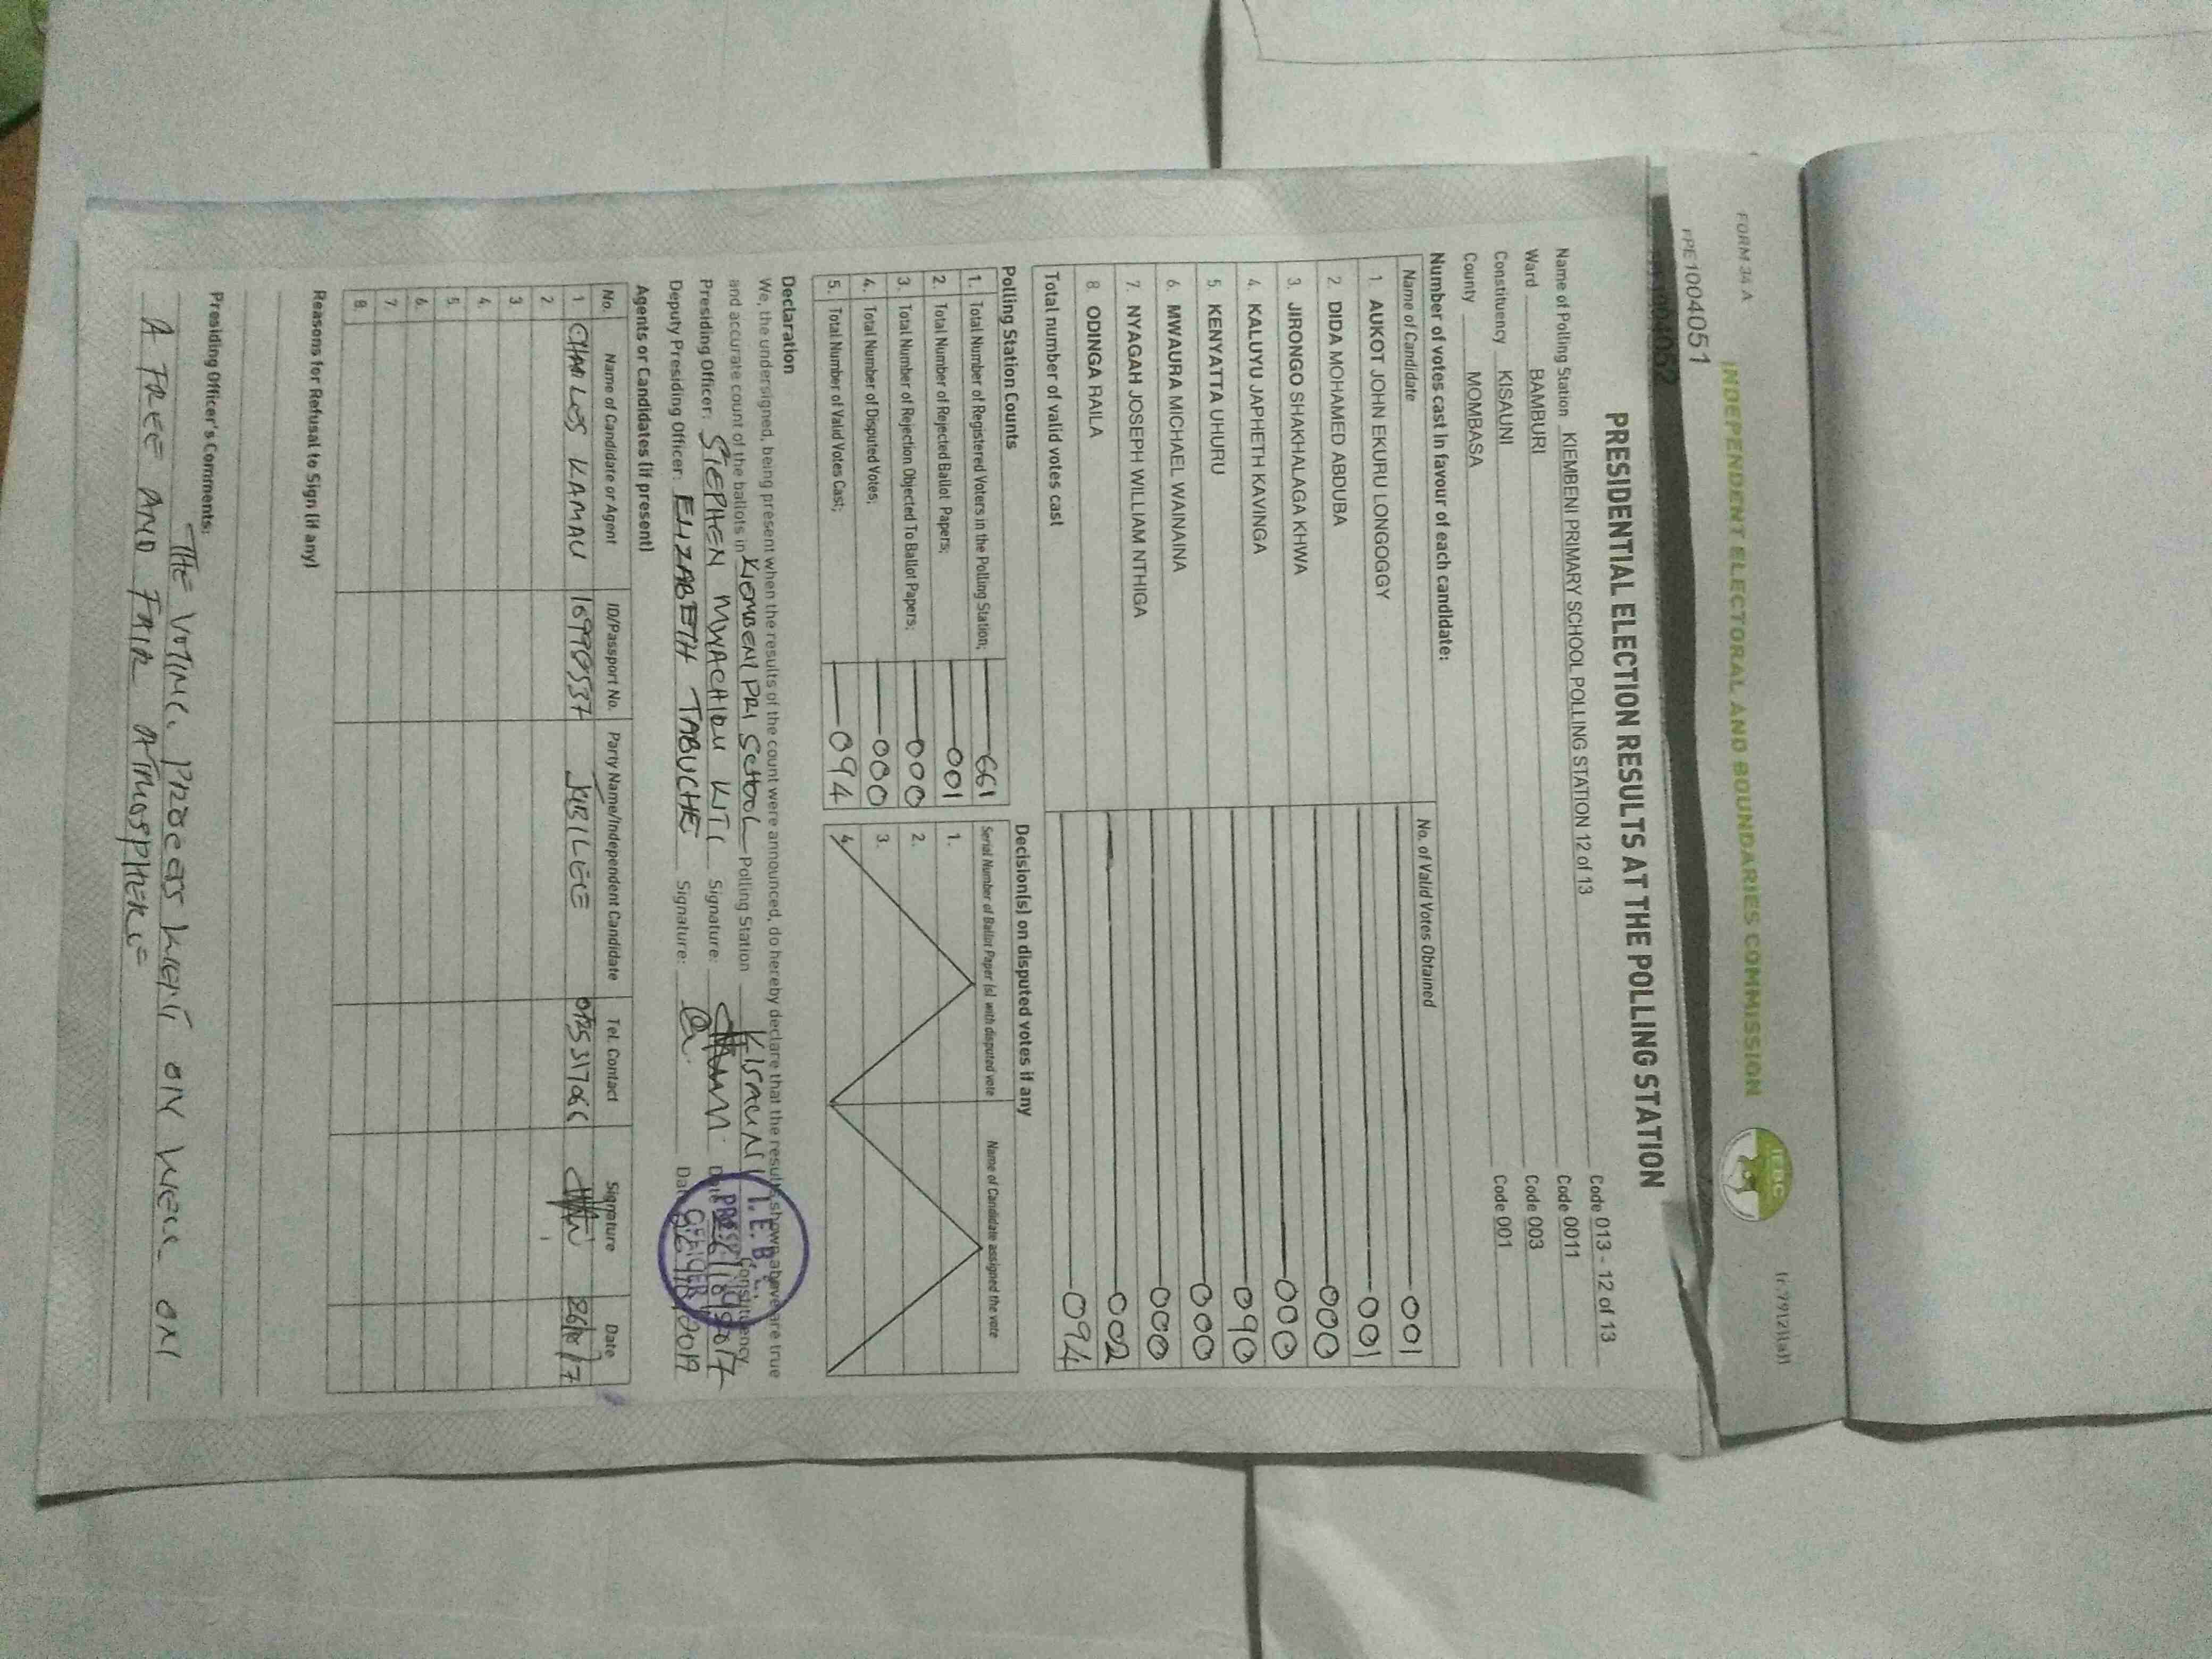 FORM 34 A
INDEPENDENT ELECTORAL AND BOUNDARIES COMMISSION
IEBC
(r.79(2)(a))
PPE1004051
PRESIDENTIAL ELECTION RESULTS AT THE POLLING STATION
Name of Polling Station KIEMBENI PRIMARY SCHOOL POLLING STATION 12 of 13 Code 013 - 12 of 13
Ward BAMBURI Code 0011
Constituency KISAUNI Code 003
County MOMBASA Code 001
Number of votes cast in favour of each candidate:
Name of Candidate No. of Valid Votes Obtained
1. AUKOT JOHN EKURU LONGOGGY 001
2. DIDA MOHAMED ABDUBA 001
3. JIRONGO SHAKHALAGA KHWA 000
4. KALUYU JAPHETH KAVINGA 000
5. KENYATTA UHURU 090
6. MWAURA MICHAEL WAINAINA 000
7. NYAGAH JOSEPH WILLIAM NTHIGA 000
8. ODINGA RAILA 002
Total number of valid votes cast 094
Polling Station Counts
1. Total Number of Registered Voters in the Polling Station; 661
2. Total Number of Rejected Ballot Papers; 001
3. Total Number of Rejection Objected To Ballot Papers; 000
4. Total Number of Disputed Votes; 000
5. Total Number of Valid Votes Cast; 094
Decision(s) on disputed votes if any
Serial Number of Ballot Paper (s) with disputed vote Name of Candidate assigned the vote
1.
2.
3.
4.
Declaration
We, the undersigned, being present when the results of the count were announced, do hereby declare that the results shown above are true
and accurate count of the ballots in KIEMBENI PRI SCHOOL Polling Station KISAUNI Constituency
Presiding Officer: STEPHEN MWACHIDU KITI Signature: Date
Deputy Presiding Officer: ELIZABETH TABUCHE Signature: Date
I.E.B.C.
OFFICER
Agents or Candidates (if present)
No. Name of Candidate or Agent ID/Passport No. Party Name/Independent Candidate Tel. Contact Signature Date
1 CHARLES KAMAU JUBILEE
2
3
4
5
6
7
8
Reasons for Refusal to Sign (if any)
Presiding Officer's Comments:
THE VOTING PROCESS WENT ON WELL ON
A FREE AND FAIR ATMOSPHERE